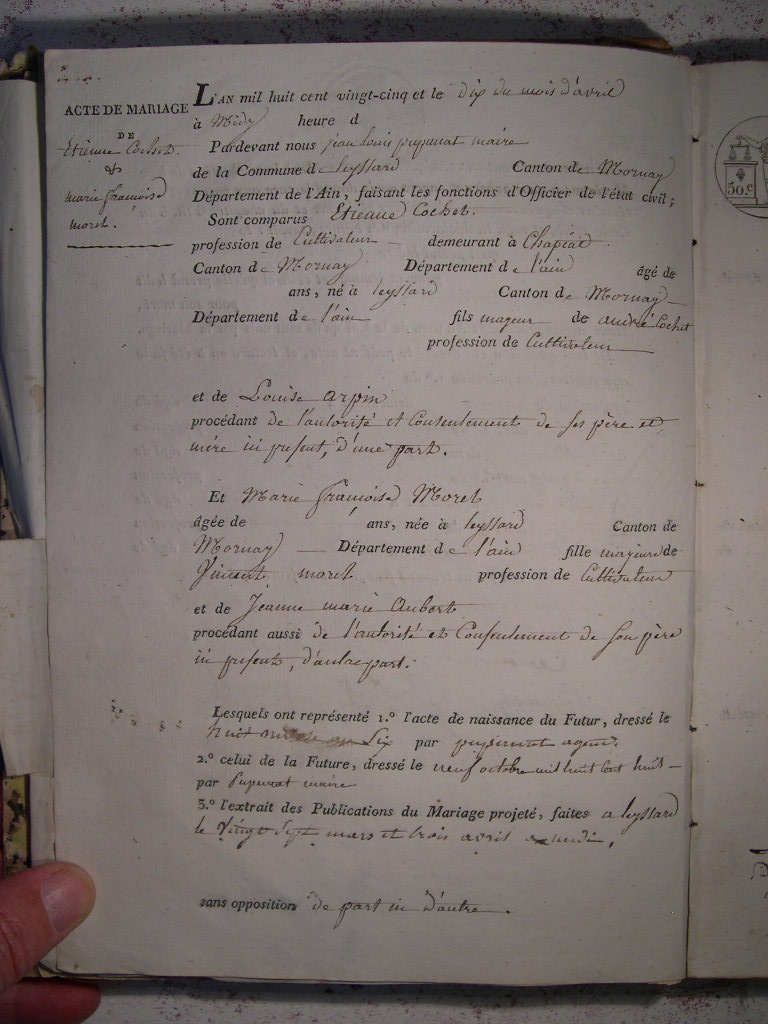 ACTE DE MARIAGE
DE
Etienne Cochet
&
marie françoise
moret.
L'AN mil huit cent vingt-cinq et le dix du mois d'avril
à Midy heure d
Pardevant nous jean louis pupunat maire
de la Commune de leyssard Canton de Mornay
Département de l'Ain, faisant les fonctions d'Officier de l'état civil;
Sont comparus Etienne Cochet.
profession de Cultivateur demeurant à Chapiat
Canton de Mornay Département de l'ain âgé de
ans, né à leyssard Canton de Mornay
Département de l'ain fils majeur de andré Cochet
profession de Cultivateur
et de Louise arpin
procédant de l'autorité et Consentement de ses père et
mère ici présent, d'une part.
Et Marie françoise Moret
âgée de ans, née à leyssard Canton de
Mornay Département de l'ain fille majeure de
Vincent moret profession de Cultivateur
et de Jeanne marie aubert
procédant aussi de l'autorité et Consentement de son père
ici présent, d'autre part.
Lesquels ont représenté 1.º l'acte de naissance du Futur, dressé le
huit an Six par pupunat agent.
2.º celui de la Future, dressé le neuf octobre mil huit cent huit
par Pupunat maire
3.º l'extrait des Publications du Mariage projeté, faites a leyssard
le vingt sept mars et trois avril a midi,
sans opposition de part ni d'autre.
50.c